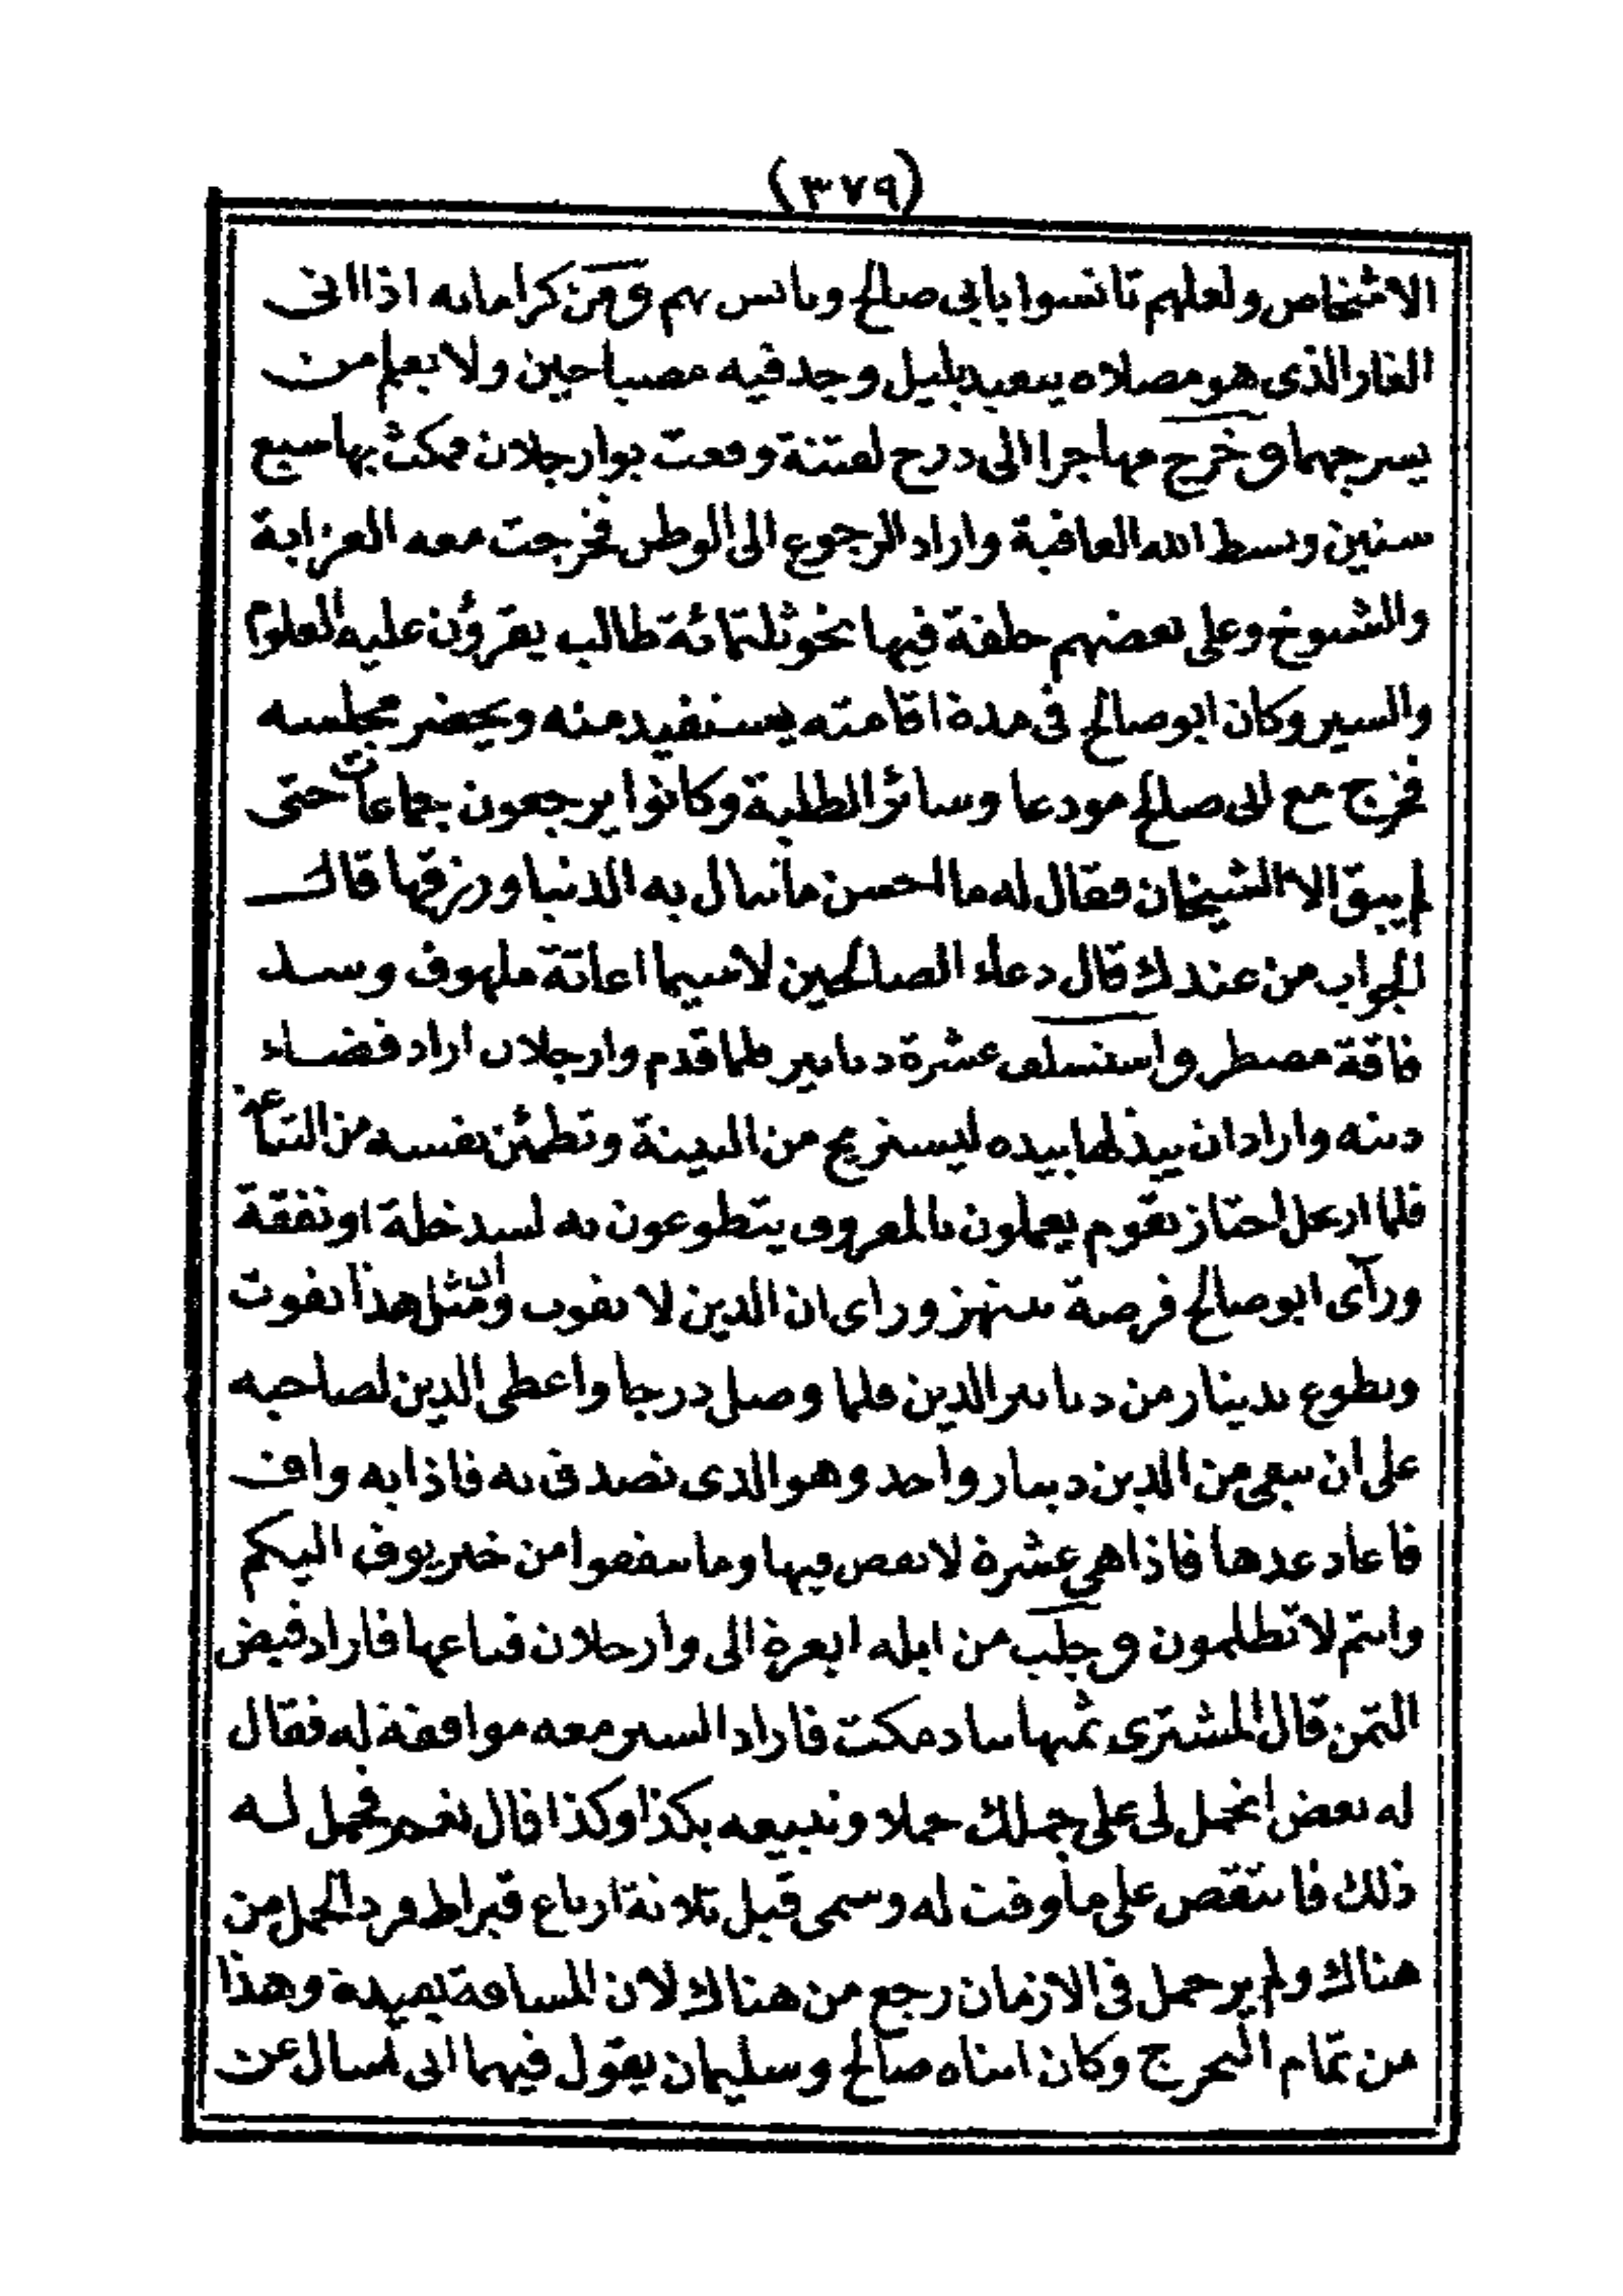 (٣٧٩)
الاشخاص ولعلهم تانسوا بابى صالح ويانس بهم ومن كراماته اذا اتى
الغار الذى هو مصلاه يتعبد بليل وجد فيه مصباحين ولا يعلم من
يسرجهما وخرج مهاجرا الى درج لفتنة وقعت بوارجلان فمكث بها سبع
سنين وبسط الله العافية واراد الرجوع الى الوطن فخرجت معه العزابة
والشيوخ وعلى بعضهم حلقة فيها نحو ثلثمائة طالب يقرؤن عليه العلوم
والسير وكان ابو صالح فى مدة اقامته يستفيد منه ويحضر مجلسه
فخرج مع ابى صالح مودعا وسائر الطلبة وكانوا يرجعون جماعات حتى
لم يبق الا الشيخان فقال له ما احسن ما تنال به الدنيا ورزقها قال
الجواب من عندك قال دعاء الصالحين لاسيما اعانة ملهوف وسد
فاقة مضطر واستسلف عشرة دنانير فلما قدم وارجلان اراد قضاء
دينه واراد ان يبذلها بيده ليستريح من البينة وتطمئن نفسه من التباعة
فلما ارتحل اجتاز بقوم يعملون بالمعروف يتطوعون به لسد خلة او نفقة
ورآى ابو صالح فرصة تنتهز وراى ان الدين لا يفوت وان مثل هذا يفوت
وتطوع بدينار من دنانير الدين فلما وصل درجا واعطى الدين لصاحبه
على ان يبقى من الدين دينار واحد وهو الذى تصدق به فاذا به واف
فاعاد عدها فاذا هى عشرة لا نقص فيها وما تنفقوا من خير يوف اليكم
وانتم لا تظلمون وجلب من ابله ابعرة الى وارجلان فباعها فاراد قبض
الثمن قال المشترى ثمنها بتادمكت فاراد السير معه موافقة له فقال
له بعض اتحمل لى على جملك حملا وتبيعه بكذا وكذا قال نعم فحمل له
ذلك فانتقص على ما وقت له وسمى قيل ثلاثة ارباع قيراط فرد الحمل من
هناك ولم ير حمل فى الازمان رجع من هناك لان المسافة بعيدة وهذا
من تمام التحرج وكان ابناه صالح وسليمان يقول فيهما انى اسال عن